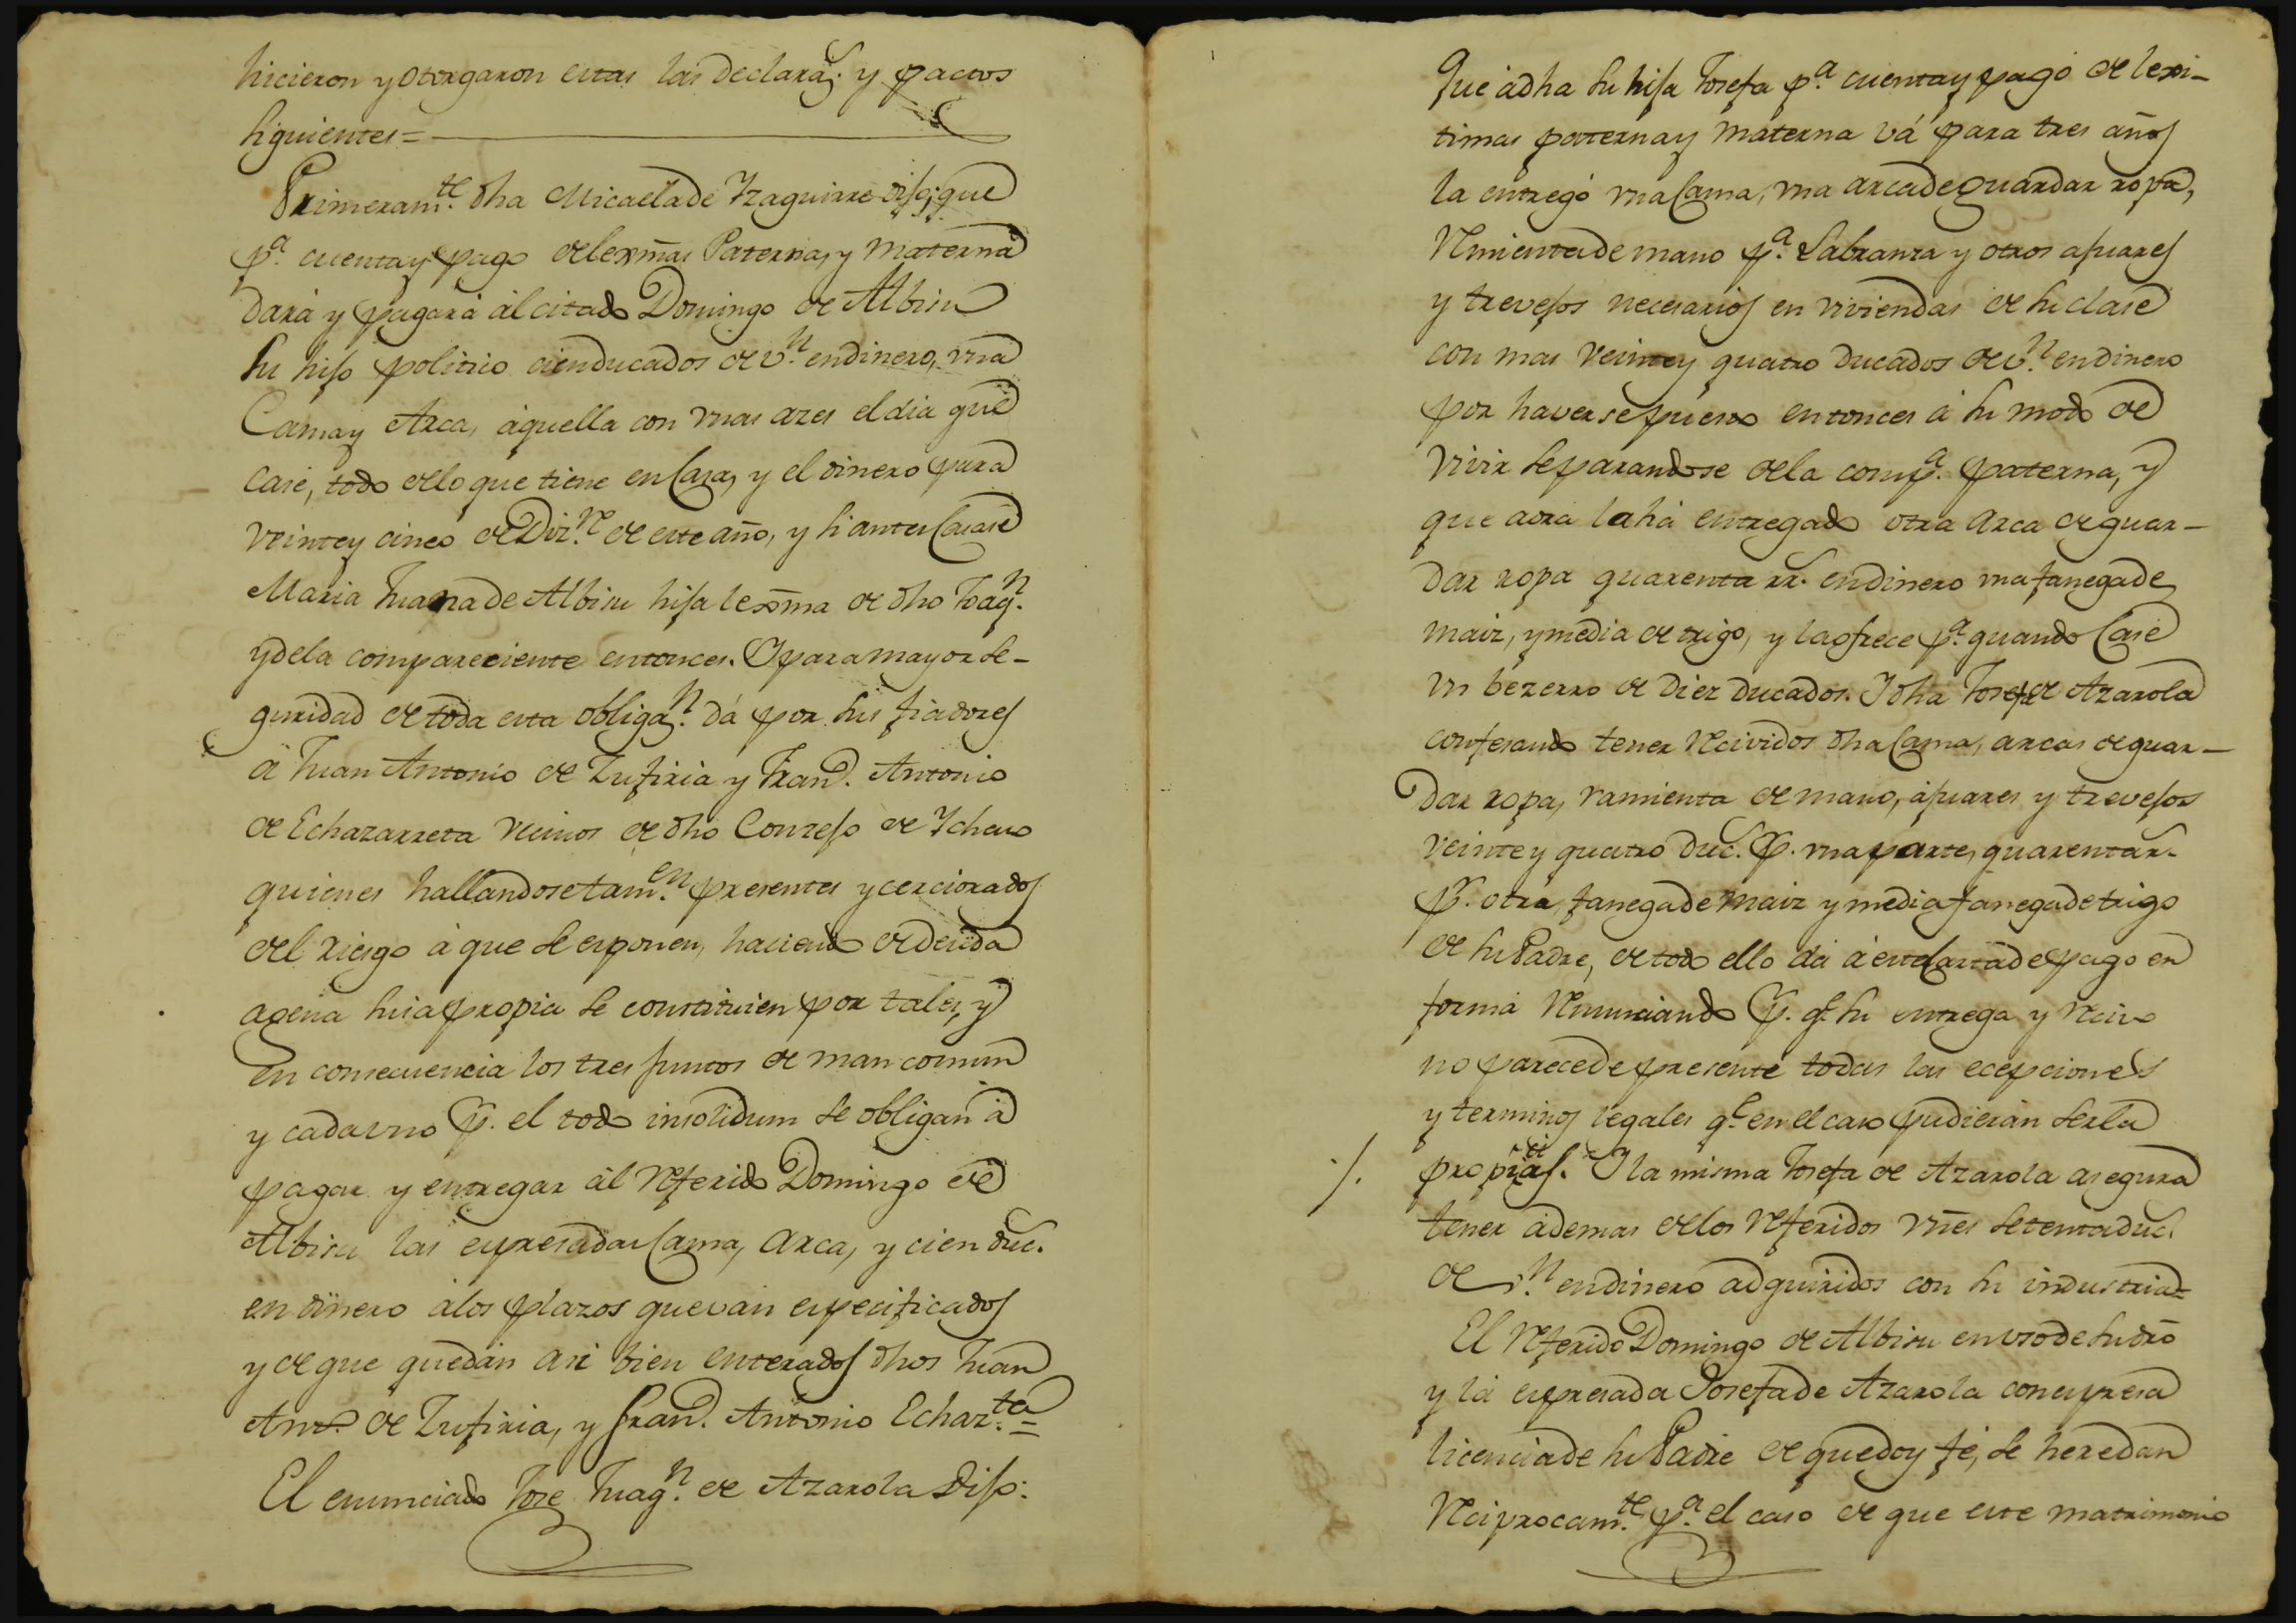 hicieron y otorgaron estas las declaraс.s y pactos
siguientes=
Primeram.te dha Micaela de Yzaguirre dijo, que
p.a cuenta y pago de lexmas Paterna, y Materna
dará y pagará al citado Domingo de Albisu
su hijo politico cien ducados de v.n en dinero, una
Cama y Arca, aquella con mas azes el dia que
case, todo ello que tiene en Casa, y el dinero para
veinte y cinco de Diz.re de este año, y si antes Casase
Maria Juana de Albisu hija lexma de dho Joaq.n
y de la compareciente entonces. Y para mayor se-
guridad de toda esta obligaс.n dá por sus fiadores
á Juan Antonio de Zufiria y Fran.co Antonio
de Echazarreta vecinos de dho Conzejo de Ichaso
quienes hallandose tam.en presentes y cerciorados
del riesgo á que se exponen, haciendo de deuda
agena suia propia se constituien por tales, y
en consecuencia los tres juntos de man comun
y cada vno p.r el todo insolidum se obligan á
pagar y entregar al referido Domingo de
Albisu las expresadas Cama, Arca, y cien duc.s
en dinero á los plazos que van especificados
y de que quedan asi bien enterados dhos Juan
Ant.o de Zufiria, y Fran.co Antonio Echaz.ta=
El enunciado Jose Juaq.n de Azarola Dijo:
Que á dha su hija Josefa p.a cuenta y pago de lexi-
timas paterna y materna vá para tres años
la entregó una Cama, una arca de guardar ropa,
Rmienta de mano p.a Labranza y otros ajuares
y trevejos necesarios en viviendas de su clase
con mas veinte y quatro ducados de v.n en dinero
por haverse puesto entonces á su modo de
vivir separandose de la comp.a paterna, y
que aora la há entregado otra arca de guar-
dar ropa quarenta rr.s en dinero una fanega de
maiz, y media de trigo, y la ofrece p.a quando Case
un bezerro de diez ducados. Y dha Josefa de Azarola
confesando tener Recividos dha Cama, arcas de guar-
dar ropa, ramienta de mano, ajuares y trevejos
veinte y quatro duc.s p.r una parte, quarenta rr.s
p.r otra, fanega de maiz y media fanega de trigo
de su Padre, de todo ello dá á este Carta de pago en
forma Renunciando p.r q.e su entrega y Recivo
no parece de presente todas las ecepciones
y terminos legales q.e en el caso pudieran serla
/. propias. Y la misma Josefa de Azarola asegura
tener ademas de los Referidos vnes setenta duc.s
de v.n en dinero adquiridos con su industria=
El Referido Domingo de Albisu en vso de su dro
y la expresada Josefa de Azarola con expresa
licencia de su Padre de que doy fé, se heredan
Reciprocam.te p.a el caso de que este matrimonio